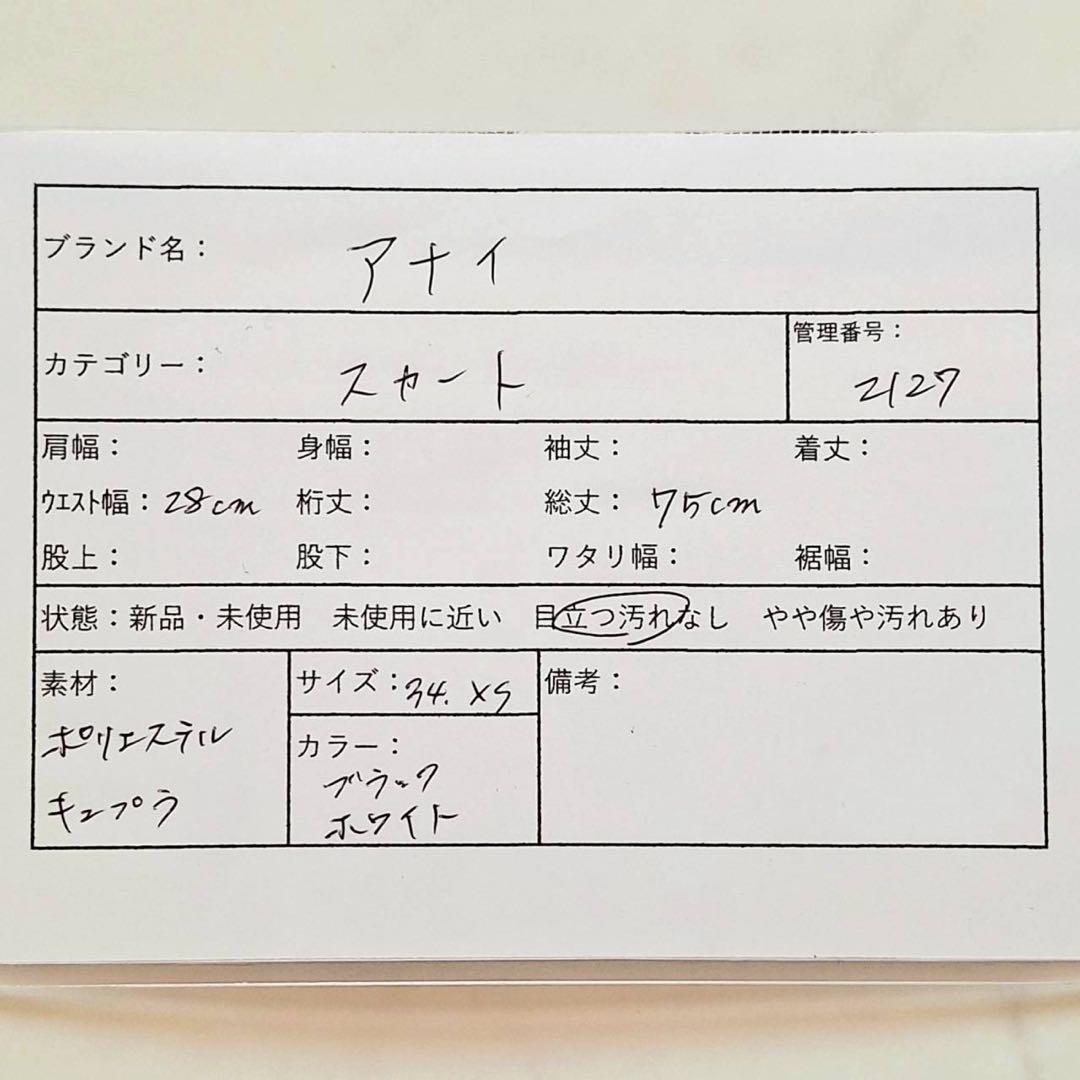 ブランド名： アナイ
カテゴリー： スカート
管理番号：
2127
肩幅： 身幅： 袖丈： 着丈：
ウエスト幅：28cm 桁丈： 総丈：75cm
股上： 股下： ワタリ幅： 裾幅：
状態：新品・未使用 未使用に近い 目立つ汚れなし やや傷や汚れあり
素材：
ポリエステル
キュプラ
サイズ：34. XS
カラー：
ブラック
ホワイト
備考：